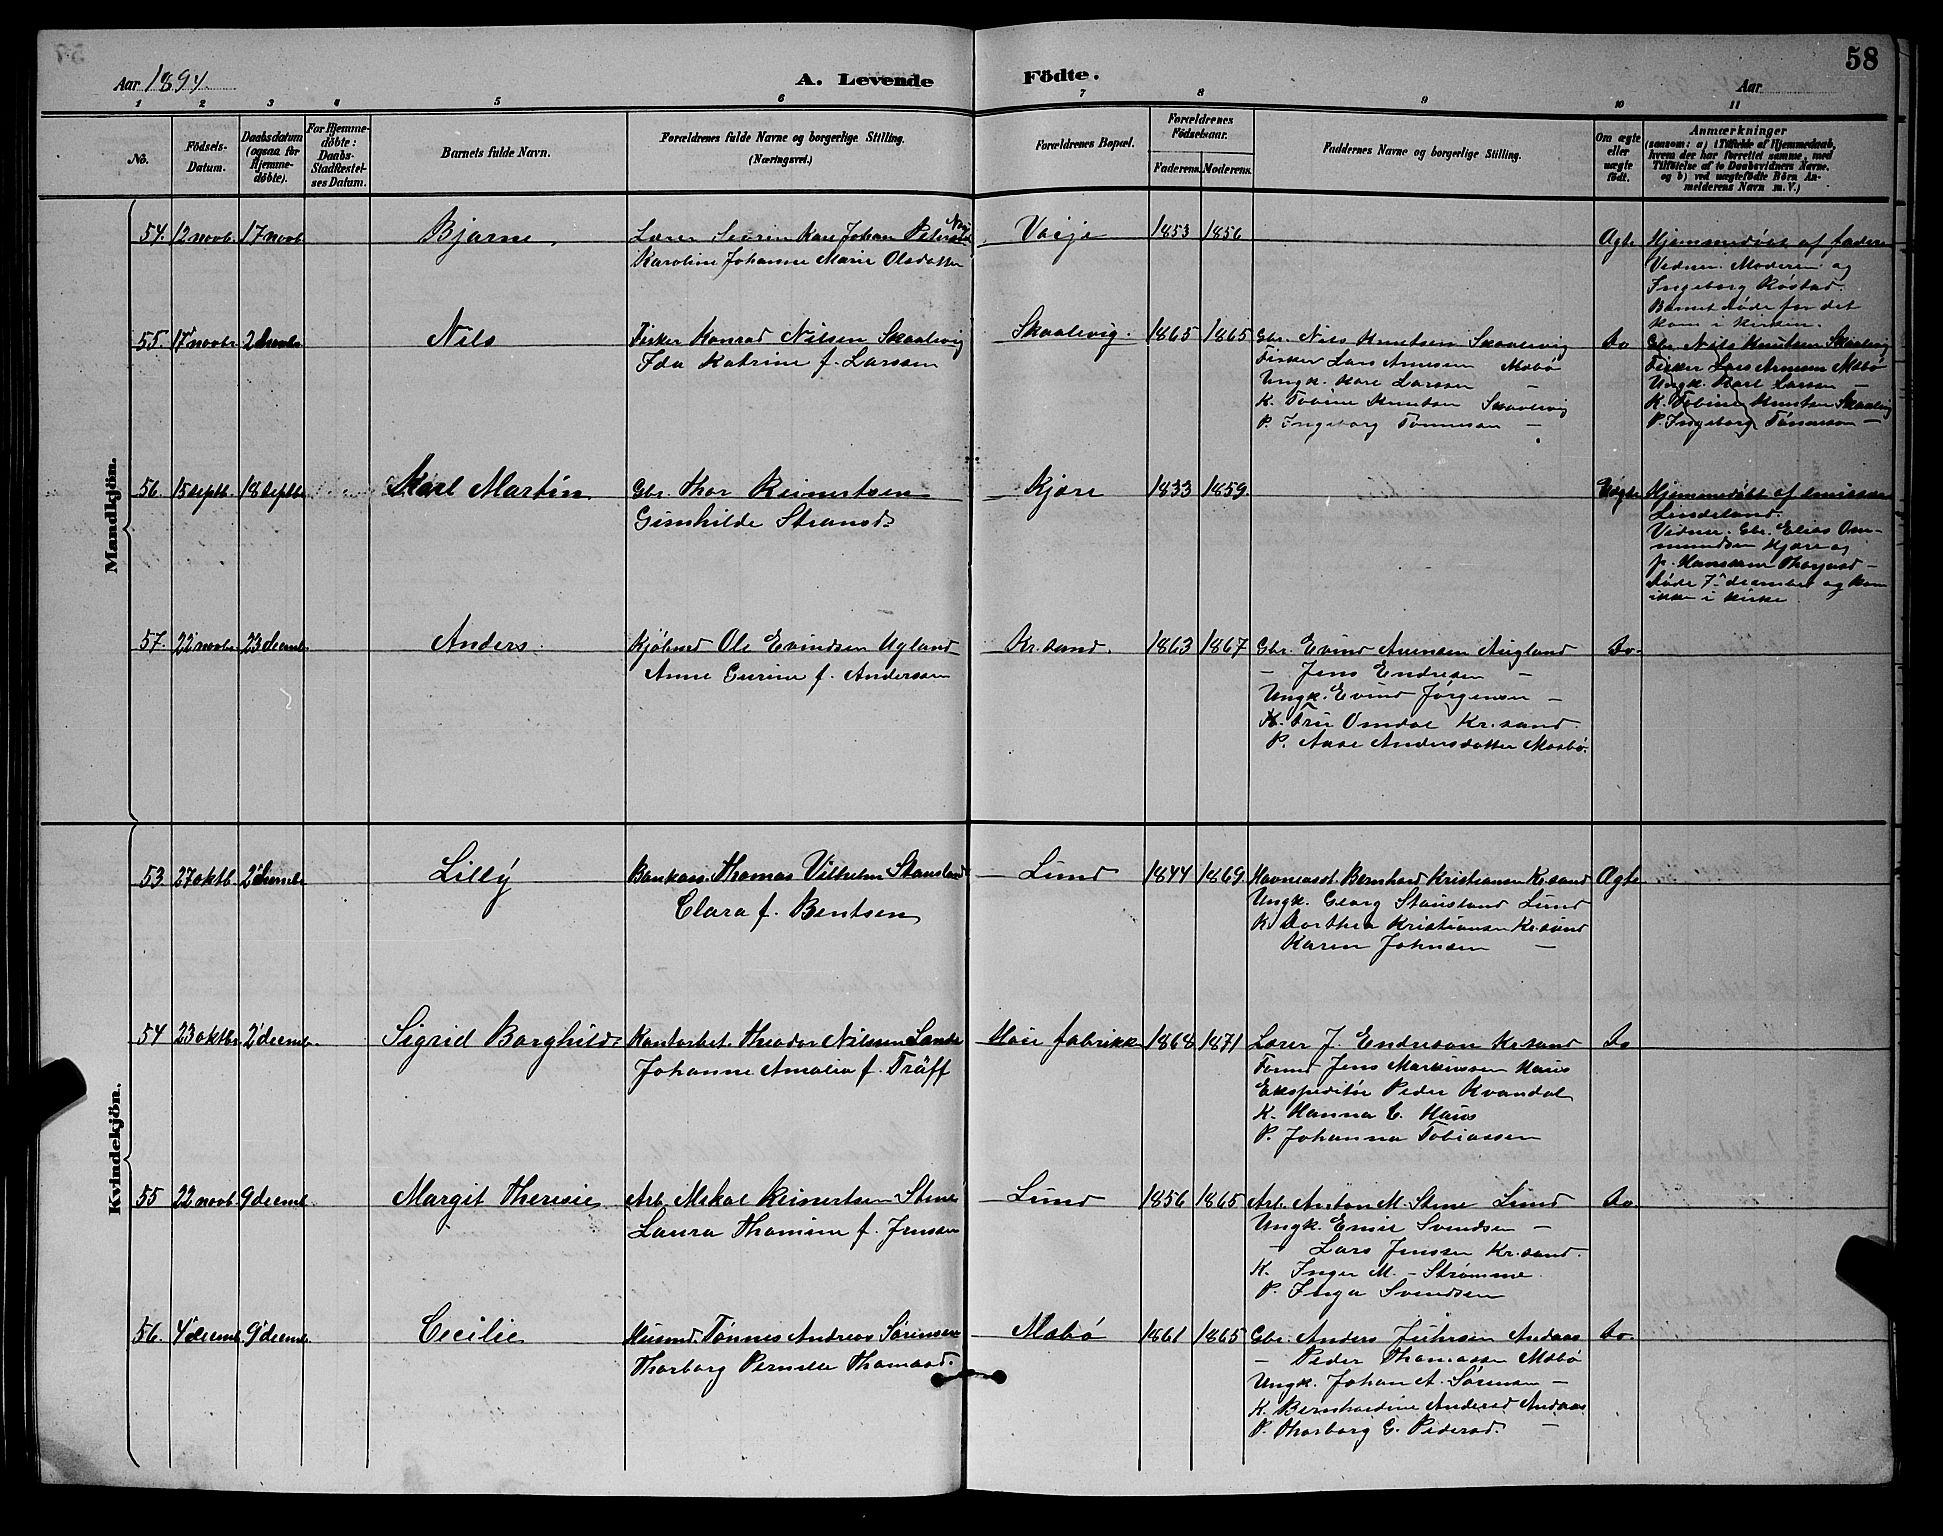 58
Aar 1894
A. Levende Födte.
Aar
1 2 3 4 5 6 7 8 9 10 11
No.
Födsels-Datum.
Daabsdatum (ogsaa for Hjemme-døbte).
For Hjemme-døbte: Daabs-Stadfæstel-ses Datum.
Barnets fulde Navn.
Forældrenes fulde Navne og borgerlige Stilling.
(Næringsvei.)
Forældrenes Bopæl.
Forældrenes Födselsaar.
Faderens. Moderens.
Faddernes Navne og borgerlige Stilling.
Om ægte eller uægte födt.
Anmærkninger
(saasom: a) i Tilfælde af Hjemmedaab, hvem der har forrettet samme, med Tilföielse af to Daabsvidners Navne, og b) ved uægtefödte Börn An-melderens Navn m. V.)
Mandkjön.
54. 12 novb. 17 novb Bjarne.
Lærer Severin Kare Johan
Karoline Johanne Marie Olsdatter
Vaije 1853 1856
Ægte Hjemmedøbt af faderen
Vidner: Moderen og
Ingeborg Røstad.
Barnet døde før det
kom i kirken.
55. 17 novbr Nils
Fisker Konrad Nilsen Skaalevig
Ida Katrine f. Larssen
Skaalevig. 1865 1865
Gbr. Nils Knutsen Skaalevig
Fisker Lars Arnesen Mebø
Ungk. Karl Larsen —
K. Tobine Knutsen Skaalevig
P. Ingeborg Tønnesen —
do
Gbr. Nils Knutsen Skaalevig
Fisker Lars Arnesen Mebø
Ungk. Karl Larsen —
K. Tobine Knutsen Skaalevig
P. Ingeborg Tønnesen —
56. 15 septb. 18 septbr Karl Martin
Gbr. Thor Reinertsen
Gunhilde Stransd.
Kjære 1833 1859.
Hjemmedøbt af emissær
Lindeland.
Vidner: Gbr. Elias Om-
mundsen Kjære og
død 7 december og kom
ikke i kirke
57. 22 novbr 23 decemb. Anders.
Kjøbmd Ole Evindsen Ugland
Anne Gurine f. Anderssen
Kr.sand. 1863 1867
Gbr. Evind Aanensen Augland
— Jens Endresen —
Ungk. Evind Jørgensen —
K. Fru Omdal Kr.sand.
P. Aase Andersdatter Mosbø.
do.
Kvindekjön.
53. 27 oktb. 2 decemb. Lilly
Bankass. Thomas Vilhelm Stausland
Clara f. Bentsen
Lund 1844 1869.
Havneasst. Bernhard Kristiansen Kr.sand
Ungk. Georg Stausland Lund
K. Dorthea Kristiansen Kr.sand
Karen Johnsen —
Ægte
54 23 oktbr. 2 decemb. Sigrid Borghild
Kontorbet. Theodor Nilssen Lande
Johanne Amalia f. Träff
Haus fabrikk 1868 1871
Lærer J. Endreson Kr.sand
Formd Jens Markussen Haus
Ekspeditør Peder Kvandal
K. Hanna C. Haus
P. Johanna Tobiassen
do
55 22 novb. 9 decemb. Margit Theresie
Arb. Mikal Reinertsen Stene
Laura Thomine f. Jenssen
Lund 1856 1865
Arb. Anton M. Stene Lund
Ungk. Emil Svendsen —
— Lars Jenssen Kr.sand.
K. Inger M. — Strømme.
P. Inga Svendsen
do
56. 4 decemb. 9 decemb. Cecilie
Husmd. Tønnes Andreas Sørensen
Thorborg Pernille Thomasd.
Mebø 1861 1865
Gbr. Anders Andaas
— Peder Thomassen Mebø
Ungk. Johan A. Sørensen —
K. Bernhardine Andersd Andaas
P. Thorborg G. Pedersd. —
do.